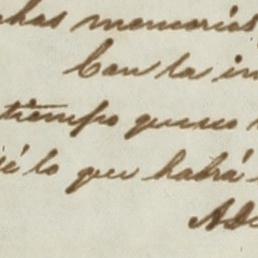 has memorias
Con la in
tiempo que no
é lo que habrá
Ad